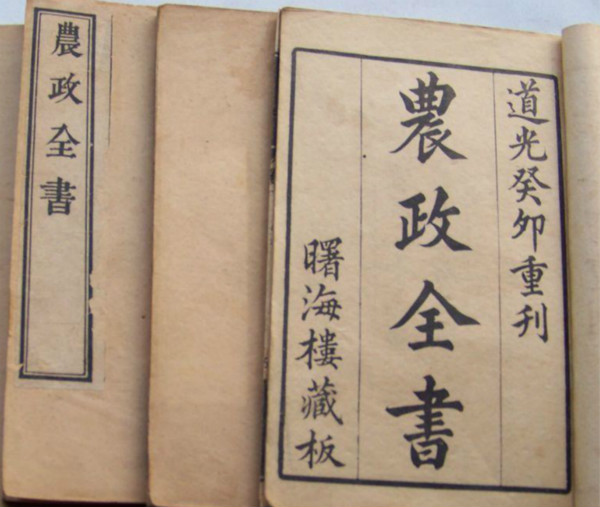 農政全書
道光癸卯重刊
農政全書
曙海樓藏板